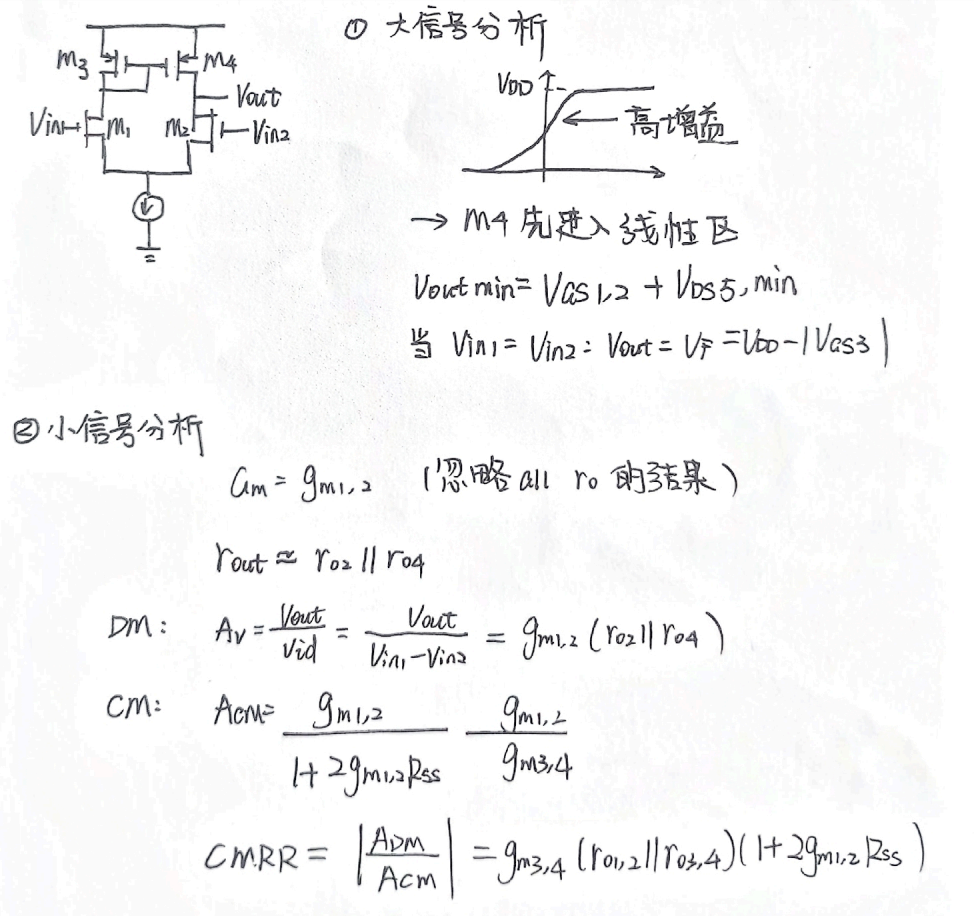 ① 大信号分析
M3
M4
Vout
Vin1
M1
M2
Vin2
VDD
高增益
→ M4 先进入线性区
Vout min = VGS1,2 + VDS5,min
当 Vin1 = Vin2: Vout = VF = VDD - |VGS3|
② 小信号分析
Gm = gm1,2 (忽略 all ro 的结果)
rout ≈ ro2 || ro4
DM: Av = Vout/Vid = Vout/(Vin1-Vin2) = gm1,2 (ro2 || ro4)
CM: ACM = gm1,2/(1+2gm1,2Rss) gm1,2/gm3,4
CMRR = |ADM/ACM| = gm3,4 (ro1,2 || ro3,4)(1+2gm1,2 Rss)